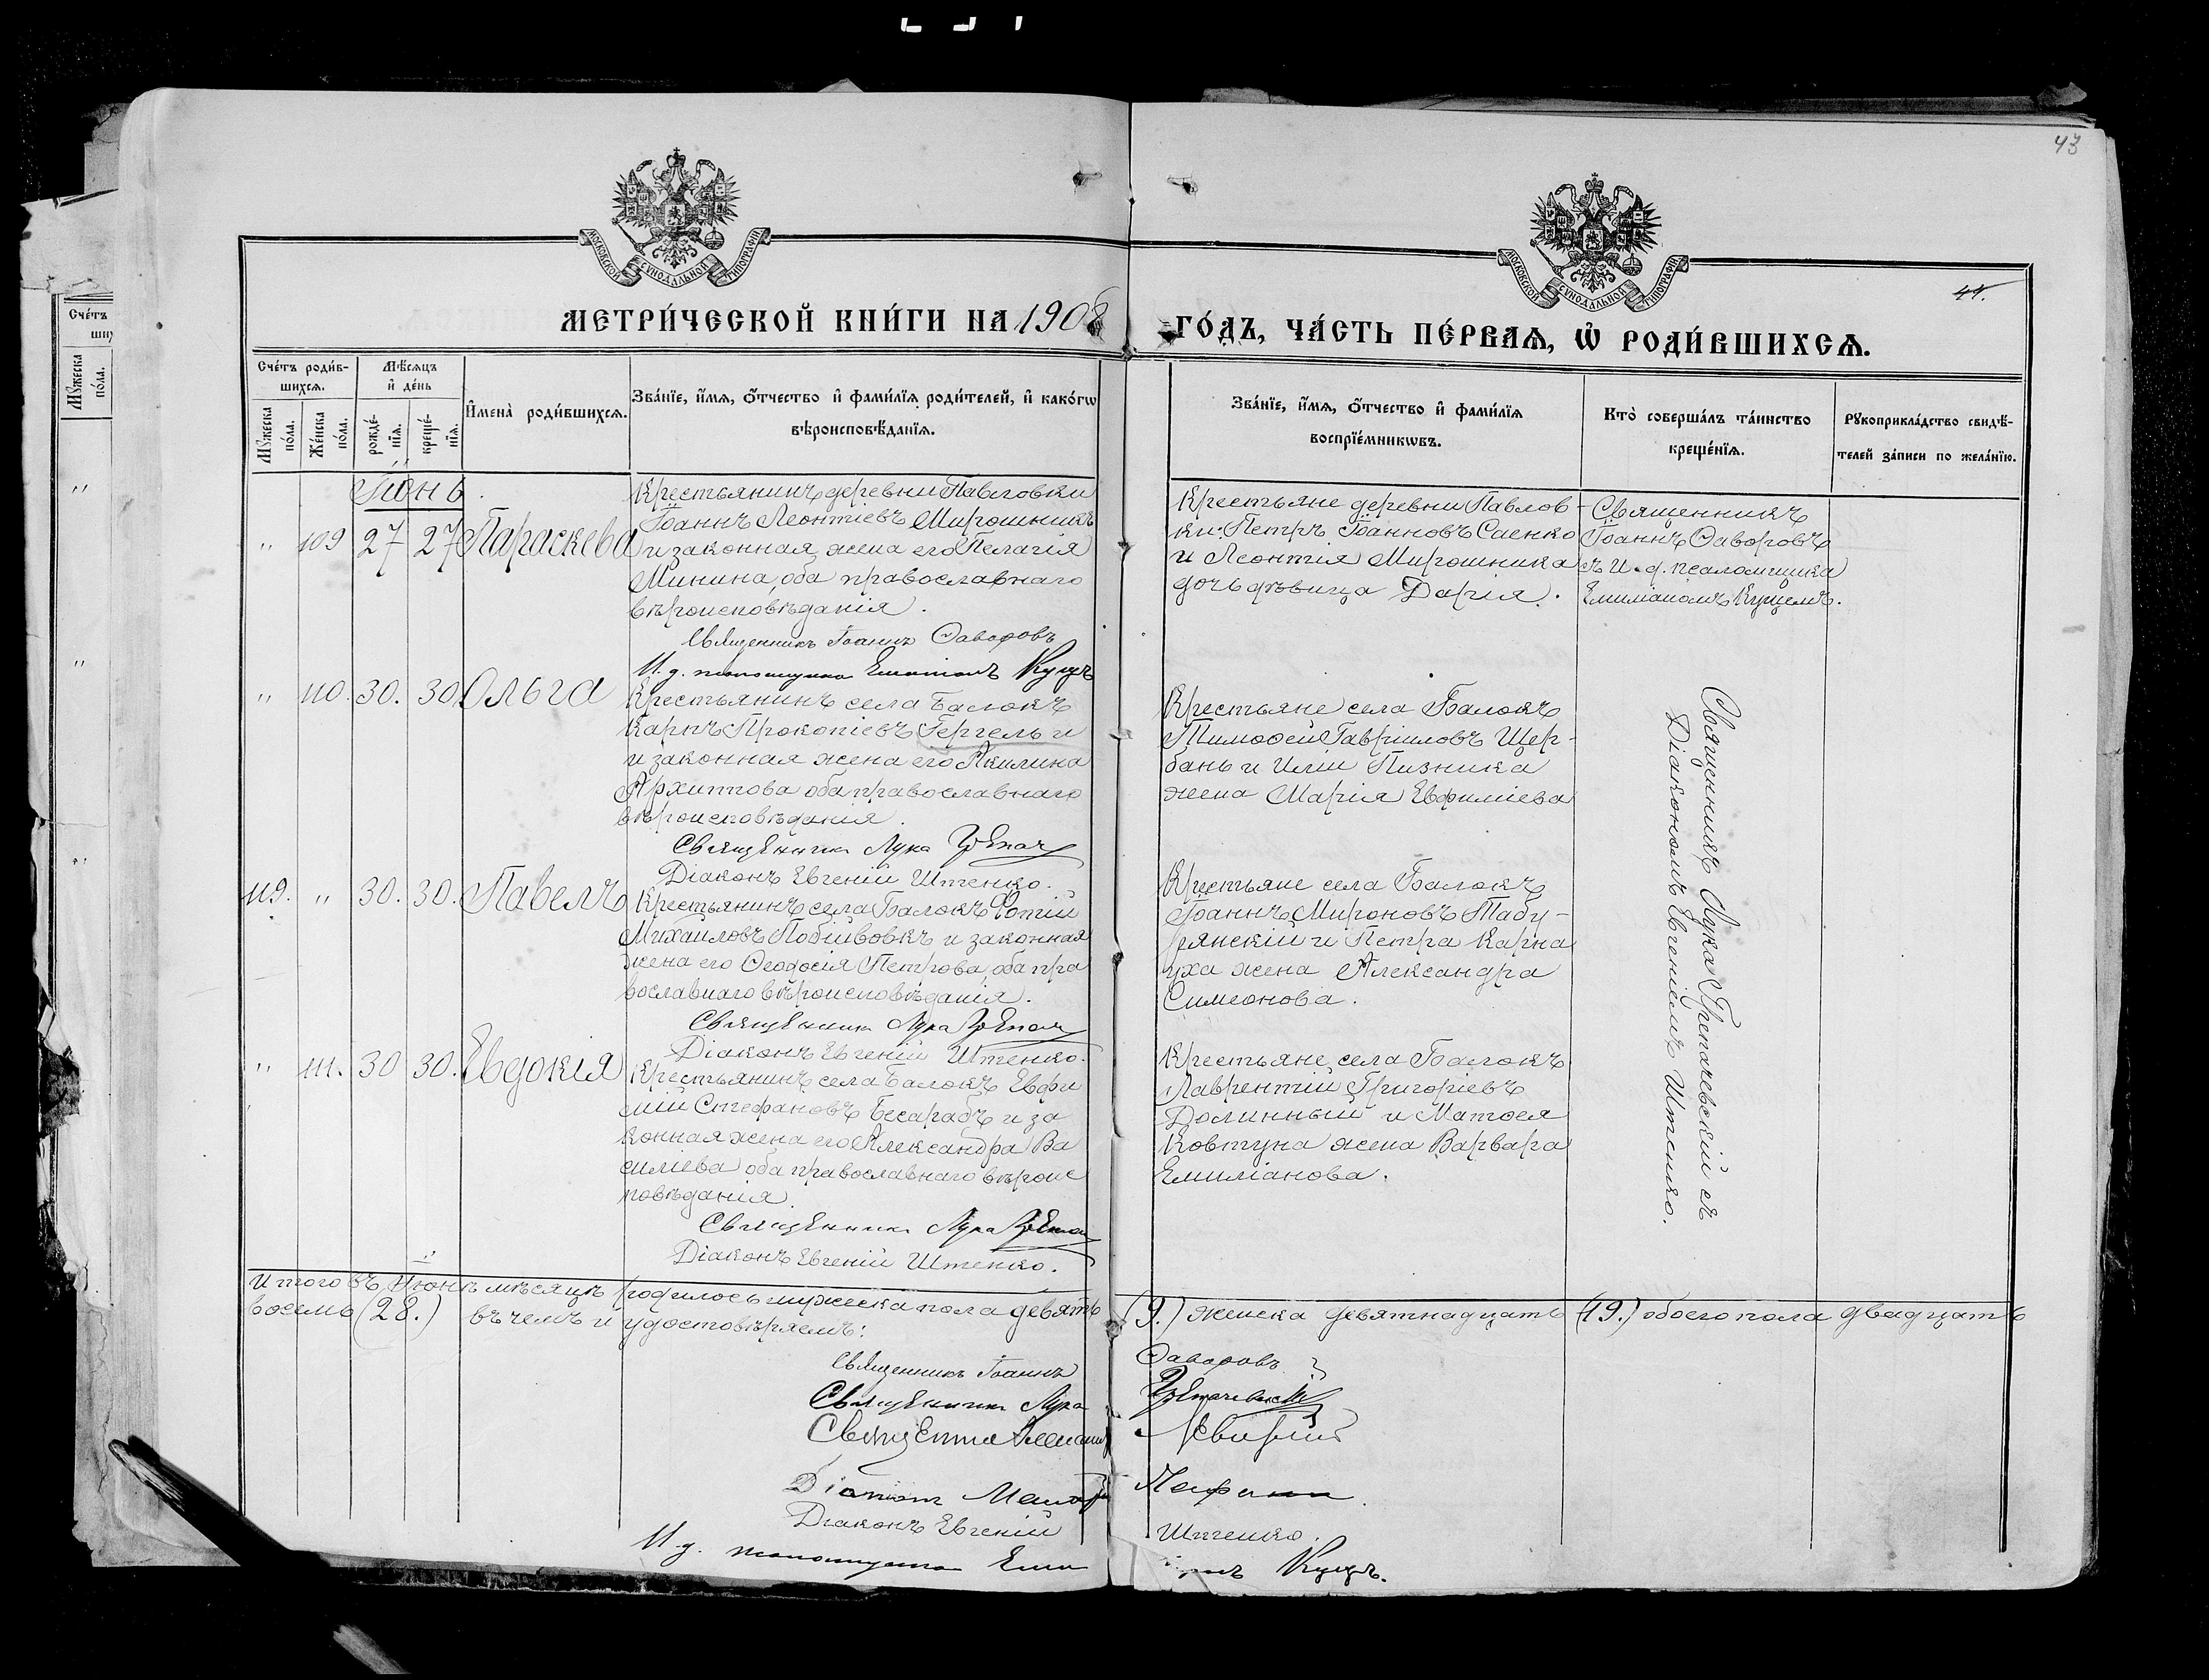 43
44.
МОСКОВСКОЙ СУНОДАЛЬНОЙ ТИПОГРАФІИ
МОСКОВСКОЙ СУНОДАЛЬНОЙ ТИПОГРАФІИ
МЕТРИ́ЧЕСКОЙ КНИ́ГИ НА 1908
ГО́ДЪ, ЧА́СТЬ ПЕ́РВАѦ, Ѡ҆ РОДИ́ВШИХСѦ.
Сче́тъ роди́в-
шихсѧ.
Мꙋжеска по́ла.
Же́нска по́ла.
Мѣ́сѧцъ
и҆ де́нь
рожде́-
нїѧ.
креще́-
нїѧ.
И҆мена̀ роди́вшихсѧ.
Зва́нїе, и҆́мѧ, ѻ҆́тчество и҆ фами́лїѧ роди́телей, и҆ како́гѡ
вѣроисповѣ́данїѧ.
Зва́нїе, и҆́мѧ, ѻ҆́тчество и҆ фами́лїѧ
воспрїе́мникѡвъ.
Кто̀ соверша́лъ та́инство
креще́нїѧ.
Рꙋкоприкла́дство свидѣ́-
телей за́писи по жела́нїю.
Іюнь.
" 109 27 27 Параскева
Крестьянинъ деревни Павловки
Іоаннъ Леонтіевъ Мирошникъ
и законная жена его Пелагія
Минина, оба православнаго
вѣроисповѣданія.
Священникъ Іоаннъ Ѳаворовъ
И. д. псаломщика Емиліанъ Куцъ
Крестьяне деревни Павлов-
ки: Петръ Іоанновъ Саенко
и Леонтія Мирошника
дочь дѣвица Дарія.
Священникъ
Іоаннъ Ѳаворовъ
съ И. д. псаломщика
Емиліаномъ Куцемъ.
" 110. 30. 30. Ольга
Крестьянинъ села Балокъ
Карпъ Прокопіевъ Гергель и
и законная жена его Акилина
Архиппова оба православнаго
вѣроисповѣданія.
Священникъ Лука
Діаконъ Евгеній Иштенко.
Крестьяне села Балокъ
Тимоѳей Гавріиловъ Щер-
бань и Иліи Пизника
жена Марія Евфиміева
Священникъ Лука Грепачевскій съ
Діакономъ Евгеніемъ Иштенко.
119. " 30. 30. Павелъ
Крестьянинъ села Балокъ Фотій
Михаиловъ Побійвовкъ и законная
жена его Ѳеодосія Петрова, оба пра
вославнаго вѣроисповѣданія.
Священникъ Лука
Діаконъ Евгеній Иштенко.
Крестьяне села Балокъ
Іоаннъ Мироновъ Табу-
рянскій и Петра Карна
уха жена Александра
Симеонова.
" 111. 30 30. Евдокія
Крестьянинъ села Балокъ Евфи
мій Стефановъ Бесарабъ и за
конная жена его Александра Ва
силіева оба православнаго вѣроис
повѣданія.
Священникъ Лука
Діаконъ Евгеній Иштенко.
Крестьяне села Балокъ
Лаврентій Григоріевъ
Долинный и Матѳея
Ковтуна жена Варвара
Емиліанова.
Итого въ Іюнѣ мѣсяцѣ родилось мужеска пола девять (9.) женска девятнадцать (19.) обоего пола двадцать
восемь (28.) въ чемъ и удостовѣряемъ:
Священникъ Іоаннъ Ѳаворовъ
Священникъ Лука Грепачевскій
Священникъ
Діаконъ
Діаконъ Евгеній Иштенко.
И. д. псаломщика Емиліанъ Куцъ.
Сче́тъ
Мꙋжеска по́ла.